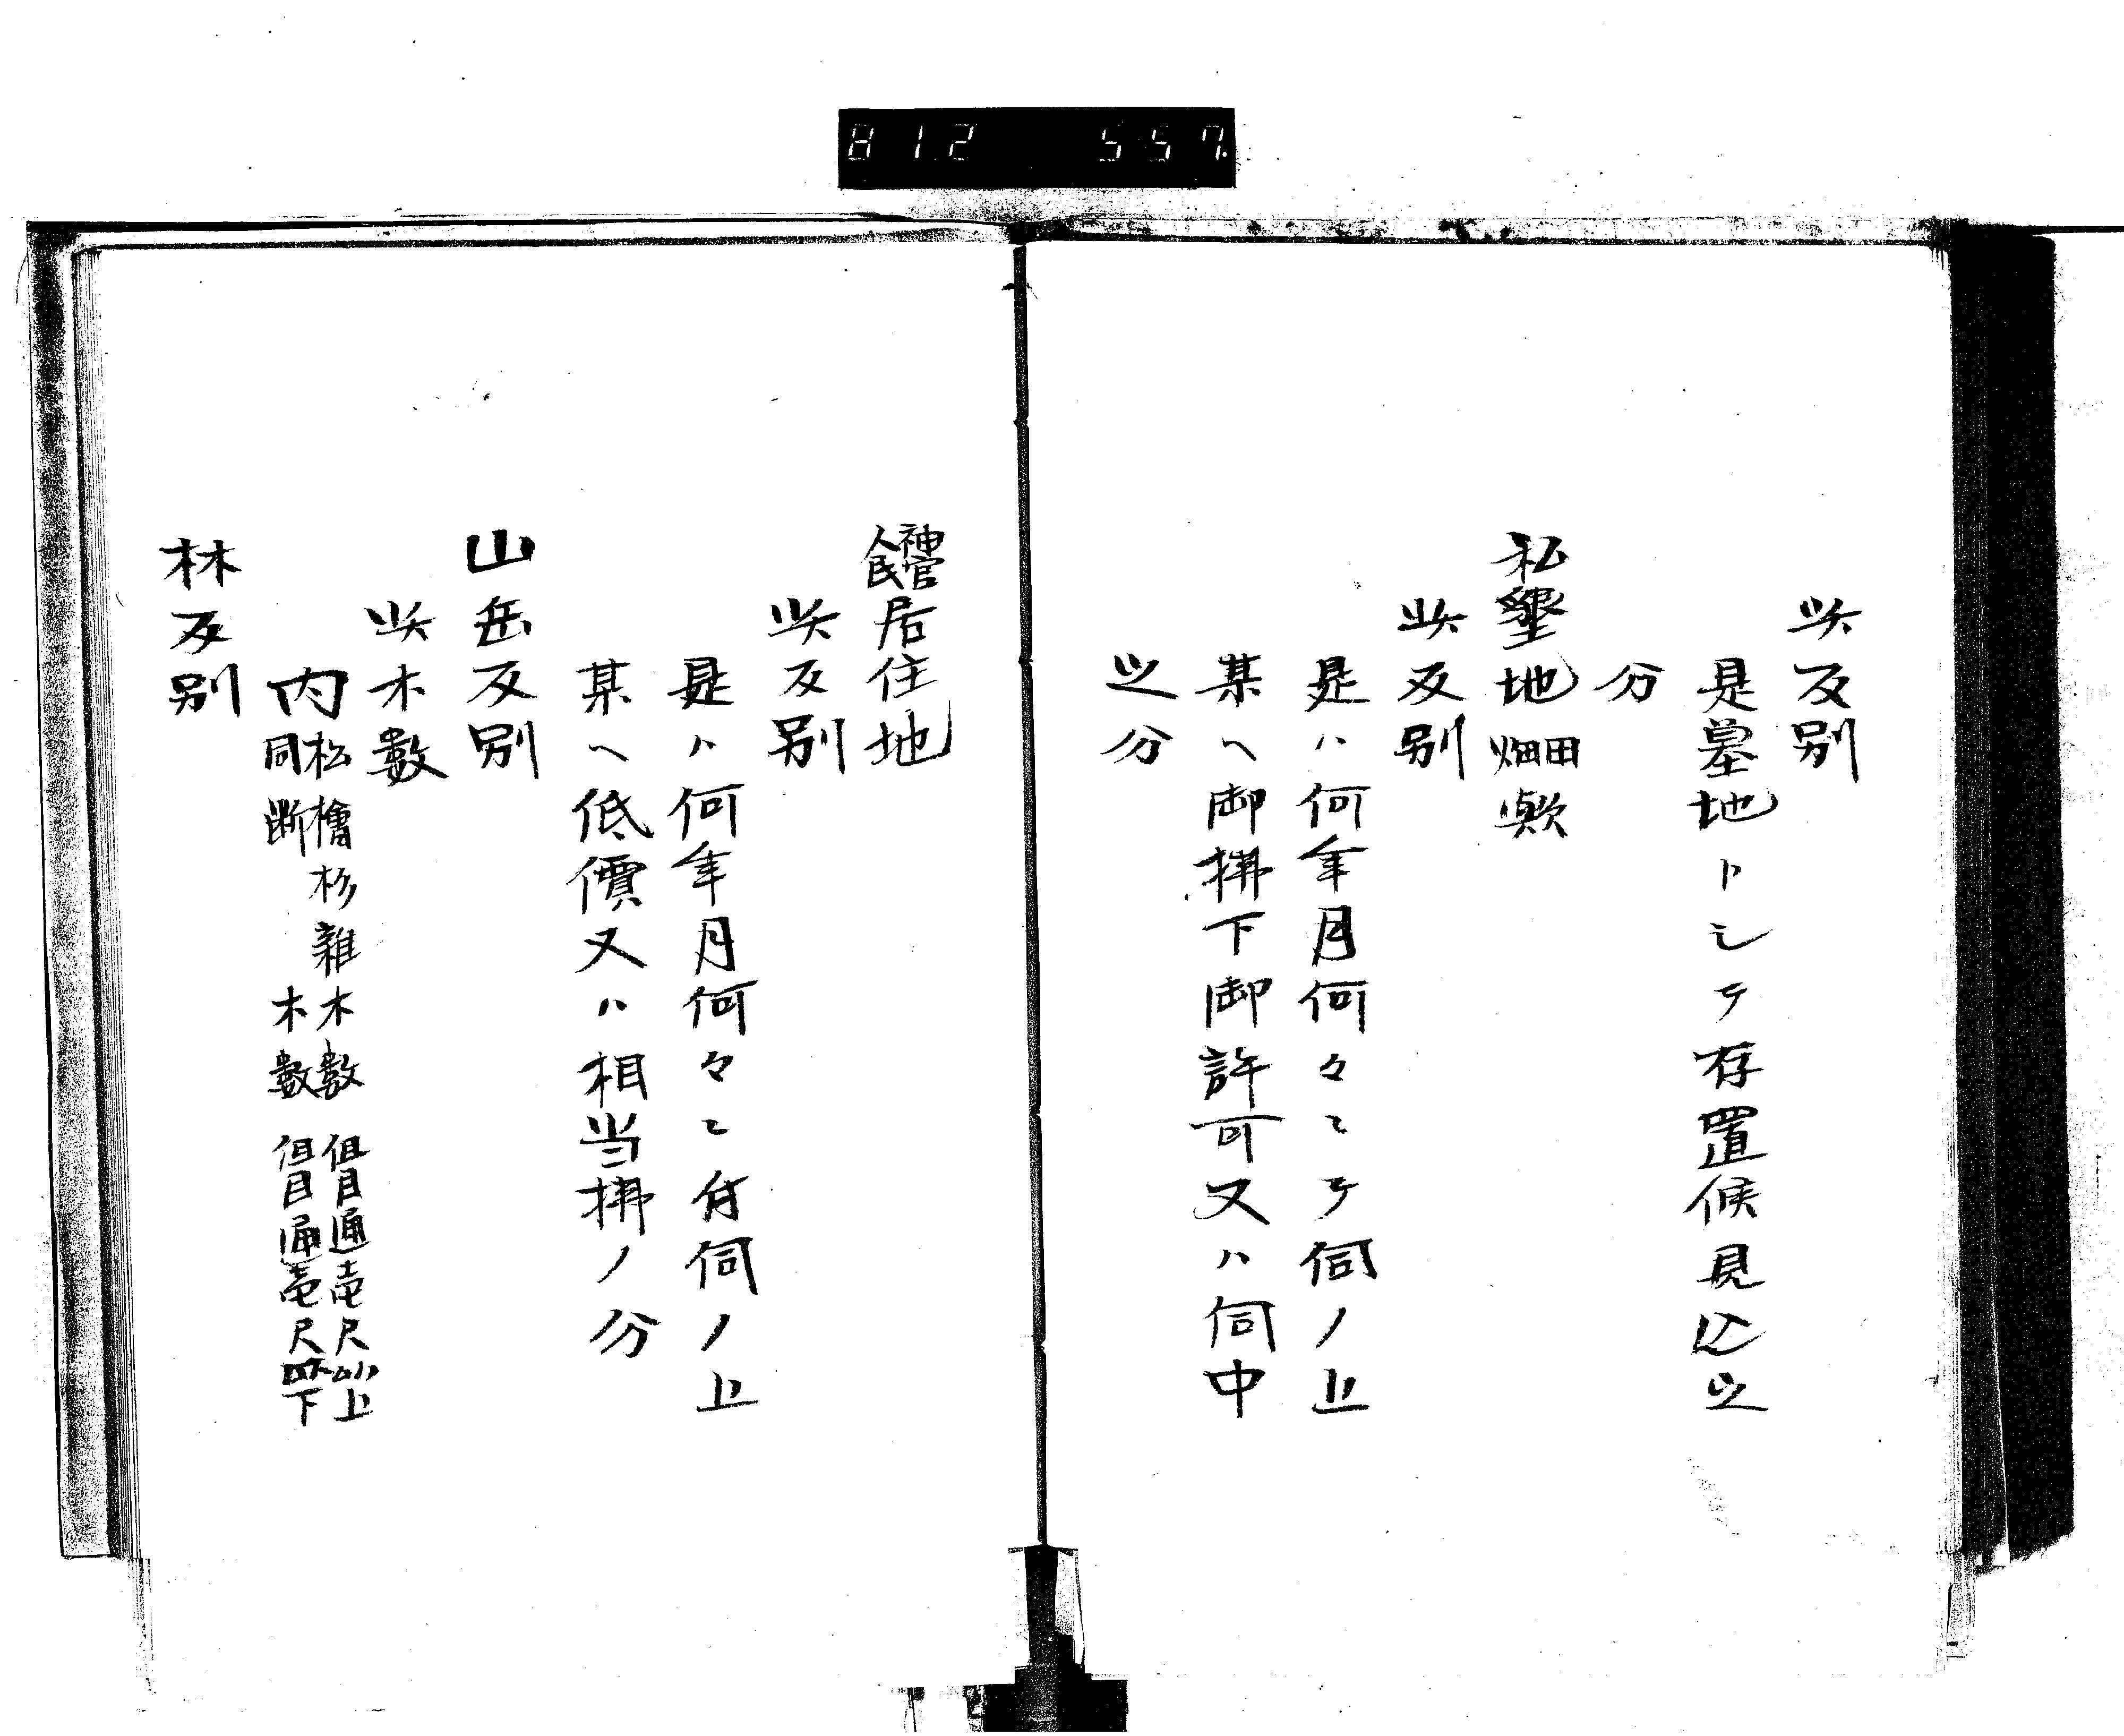 812 557
此反別
是墓地トシテ存置候見込之
分
私墾地田畑歟
此反別
是ハ何年月何々ニテ伺ノ上
某ヘ御拂下御許可又ハ伺中
之分
神官人民居住地
此反別
是ハ何年月何々ニ付伺ノ上
某ヘ低價又ハ相当拂ノ分
山岳反別
此木數
内松檜杉雜木數 但目通壱尺以上
同断 木數 但目通壱尺以下
林反別